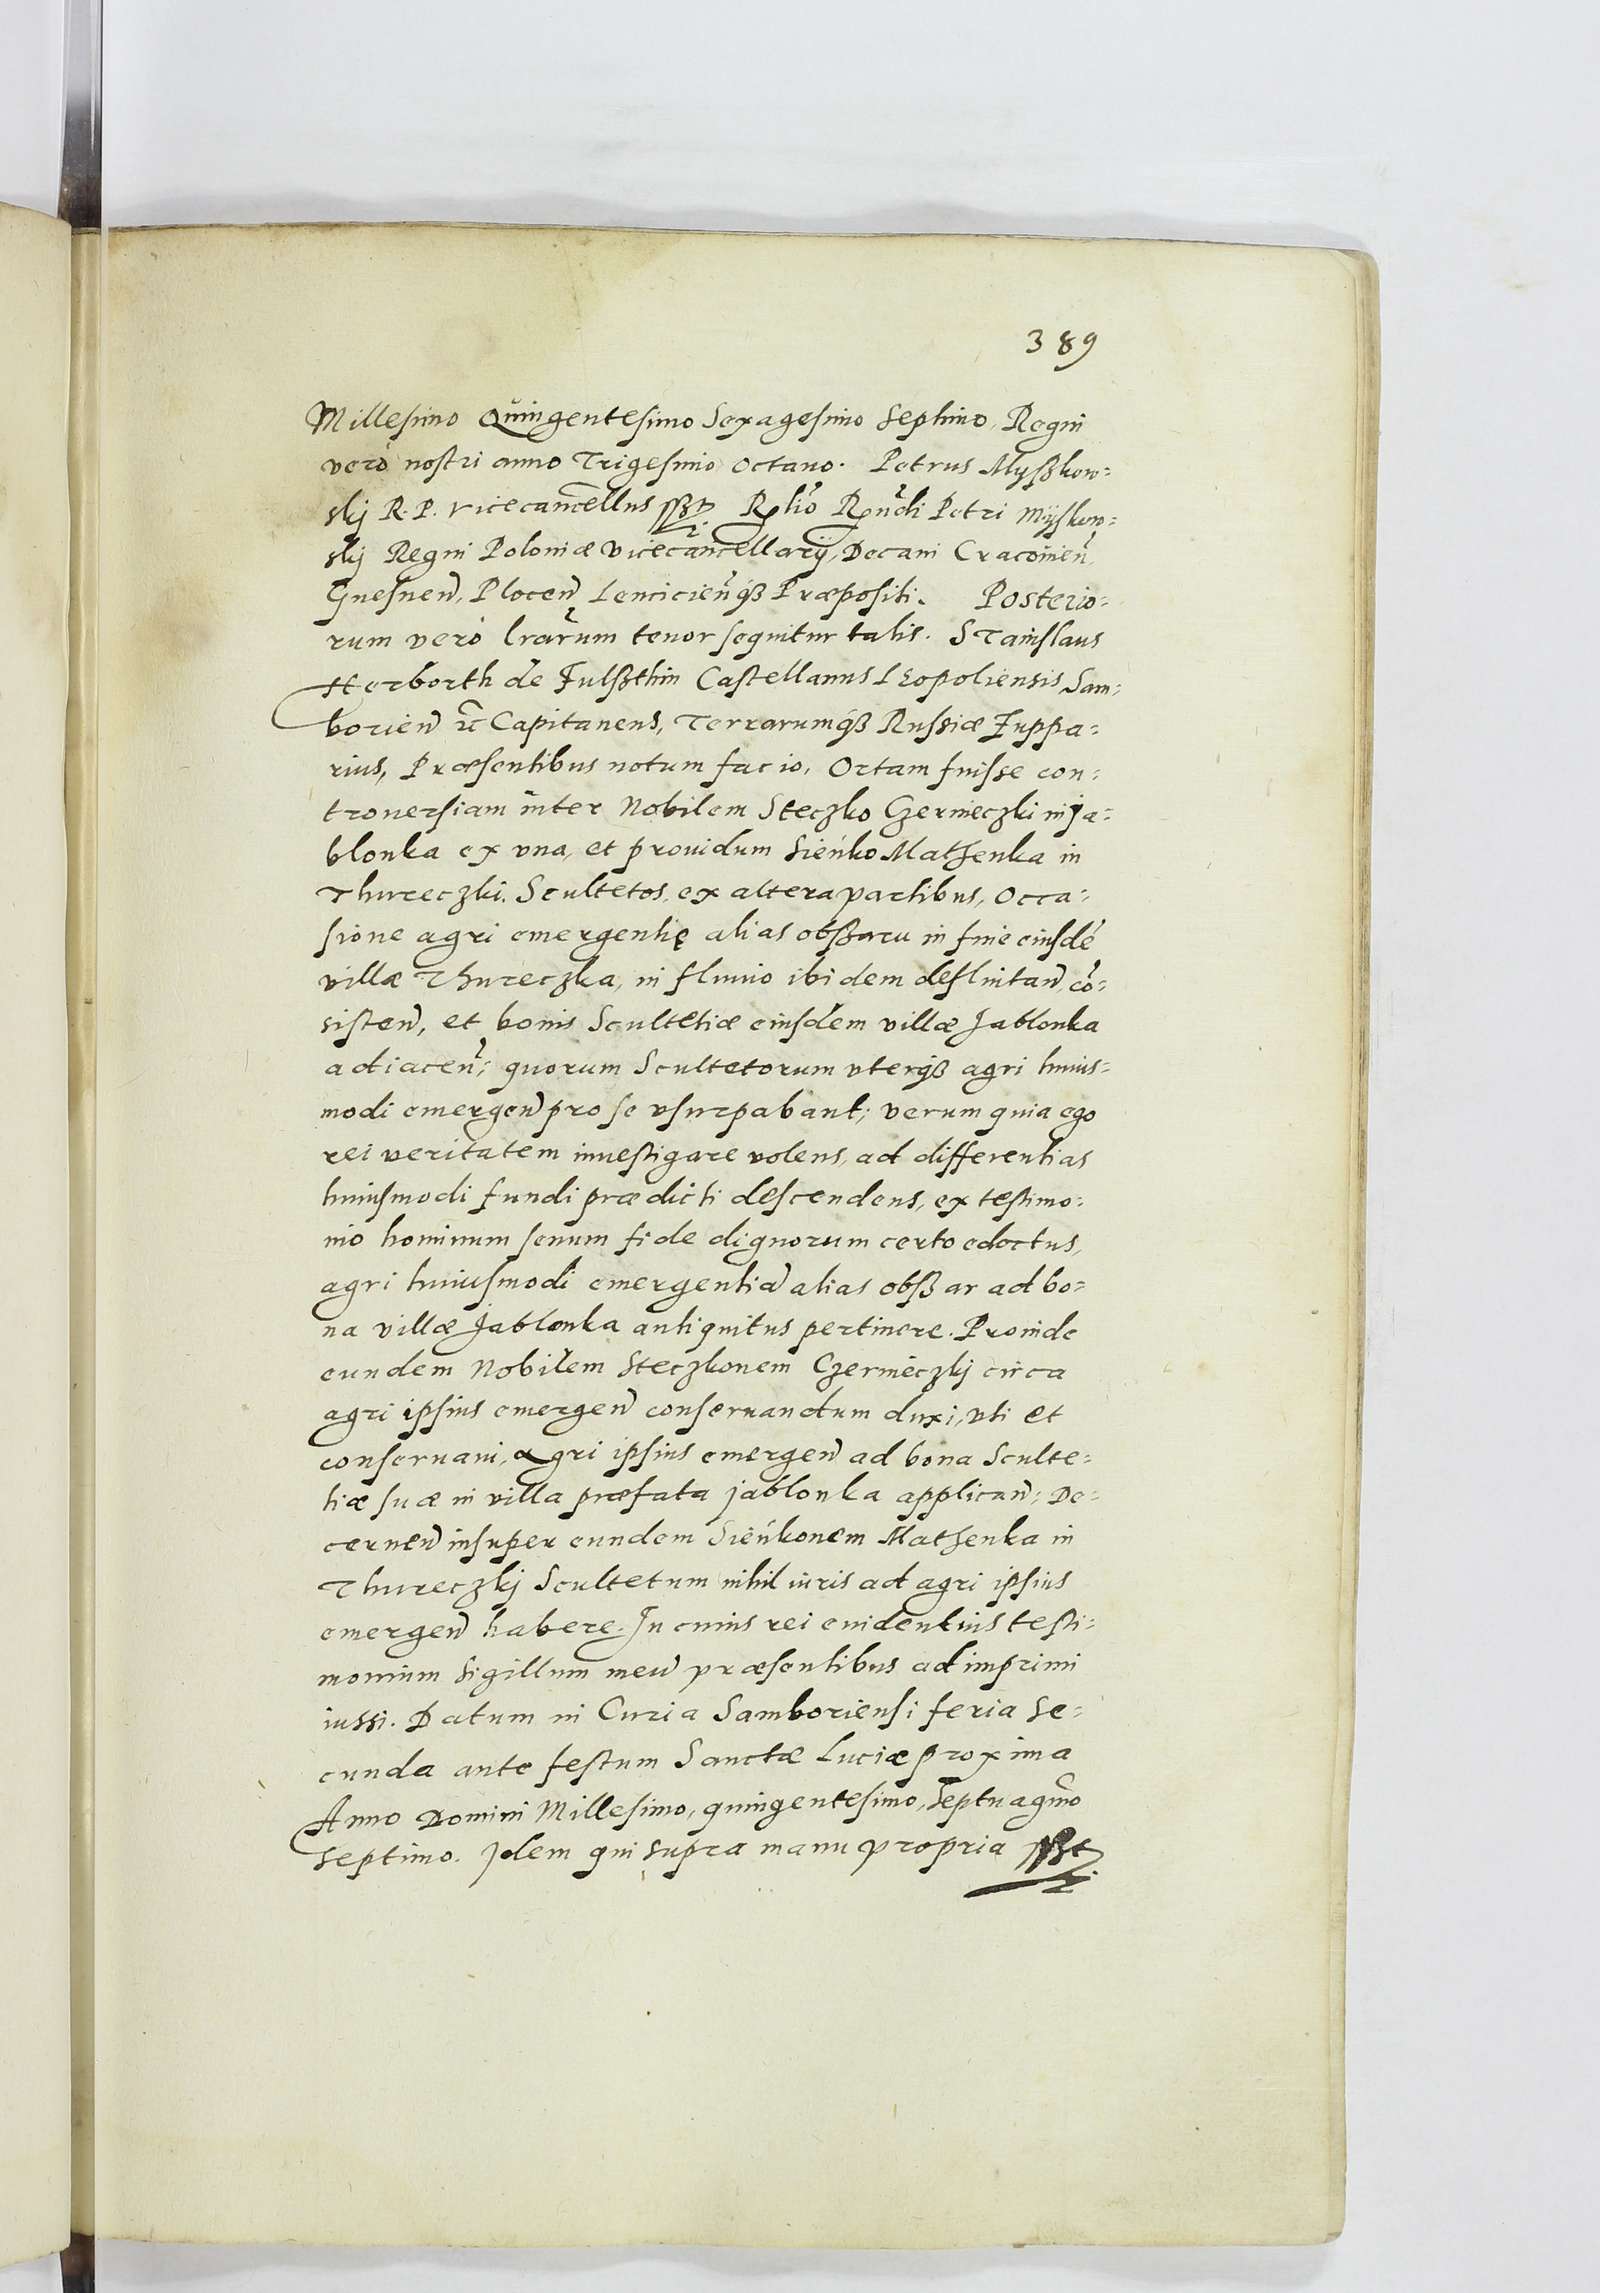 389
Millesimo Quingentesimo Sexagesimo Septimo, Regni
vero nostri anno Trigesimo octauo. Petrus Myszkow=
skj R. P. Vicecancellus sszt Rlio Rndi Petri Myskow=
skj Regni Poloniæ Vicecancellarij, Decani Cracouien,
Gnesnen, Plocen Lencicienqz Præpositi. Posterio=
rum vero lrarum tenor sequitur talis. STanislaus
Herborth de Fulszthin Castellanus Leopoliensis, Sam=
borien etc Capitaneus, Terrarumqz Russiæ Zuppa=
rius, Præsentibus notum facio, Ortam fuisse con=
trouersiam inter Nobilem Steczko Czernieczki in Ja=
blonka ex vna, et prouidum Sieńko Mathenka in
Thureczki. Scultetos, ex altera partibus, Occa=
sione agri emergentię alias obszaru in fine eiusdē
villæ Thureczka, in fluuio ibidem defluitan, cō=
sisten, et bonis Scultetiæ eiusdem villæ Jablonka
adiacen; quorum Scultetorum vterqz agri huius=
modi emergen pro se vsurpabant; verum quia ego
rei veritatem inuestigare volens, ad differentias
huiusmodi fundi prædicti descendens, ex testimo=
nio hominum senum fide dignorum certo edoctus,
agri huiusmodi emergentia alias obszar ad bo=
na villæ Jablonka antiquitus pertinere. Proinde
eundem Nobilem Steczkonem Czernieczkj circa
agri ipsius emergen conseruandum duxi, vti et
conseruaui, agri ipsius emergen ad bona Sculte=
tiæ suæ in villa præfata Jablonka applican; De=
cernen insuper eundem Sieńkonem Mathenka in
Thureczkj Scultetum nihil iuris ad agri ipsius
emergen habere. In cuius rei euidentius testi=
monium Sigillum meu præsentibus ad imprimi
iussi. Datum in Curia Samboriensi feria Se=
cunda ante festum Sanctæ Luciæ proxima
Anno Domini Millesimo, quingentesimo, Septuagmo
Septimo. Idem qui supra manu propria sszt